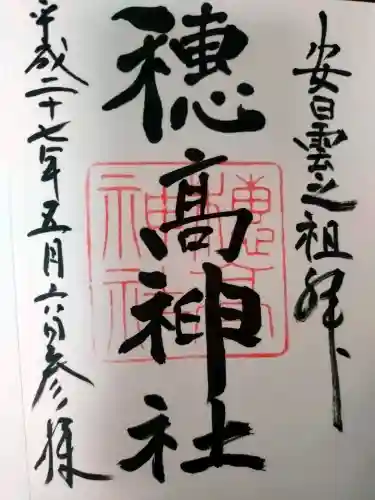 安曇之祖 拜
穂髙神社
穂髙神社
平成二十七年五月六日参拝